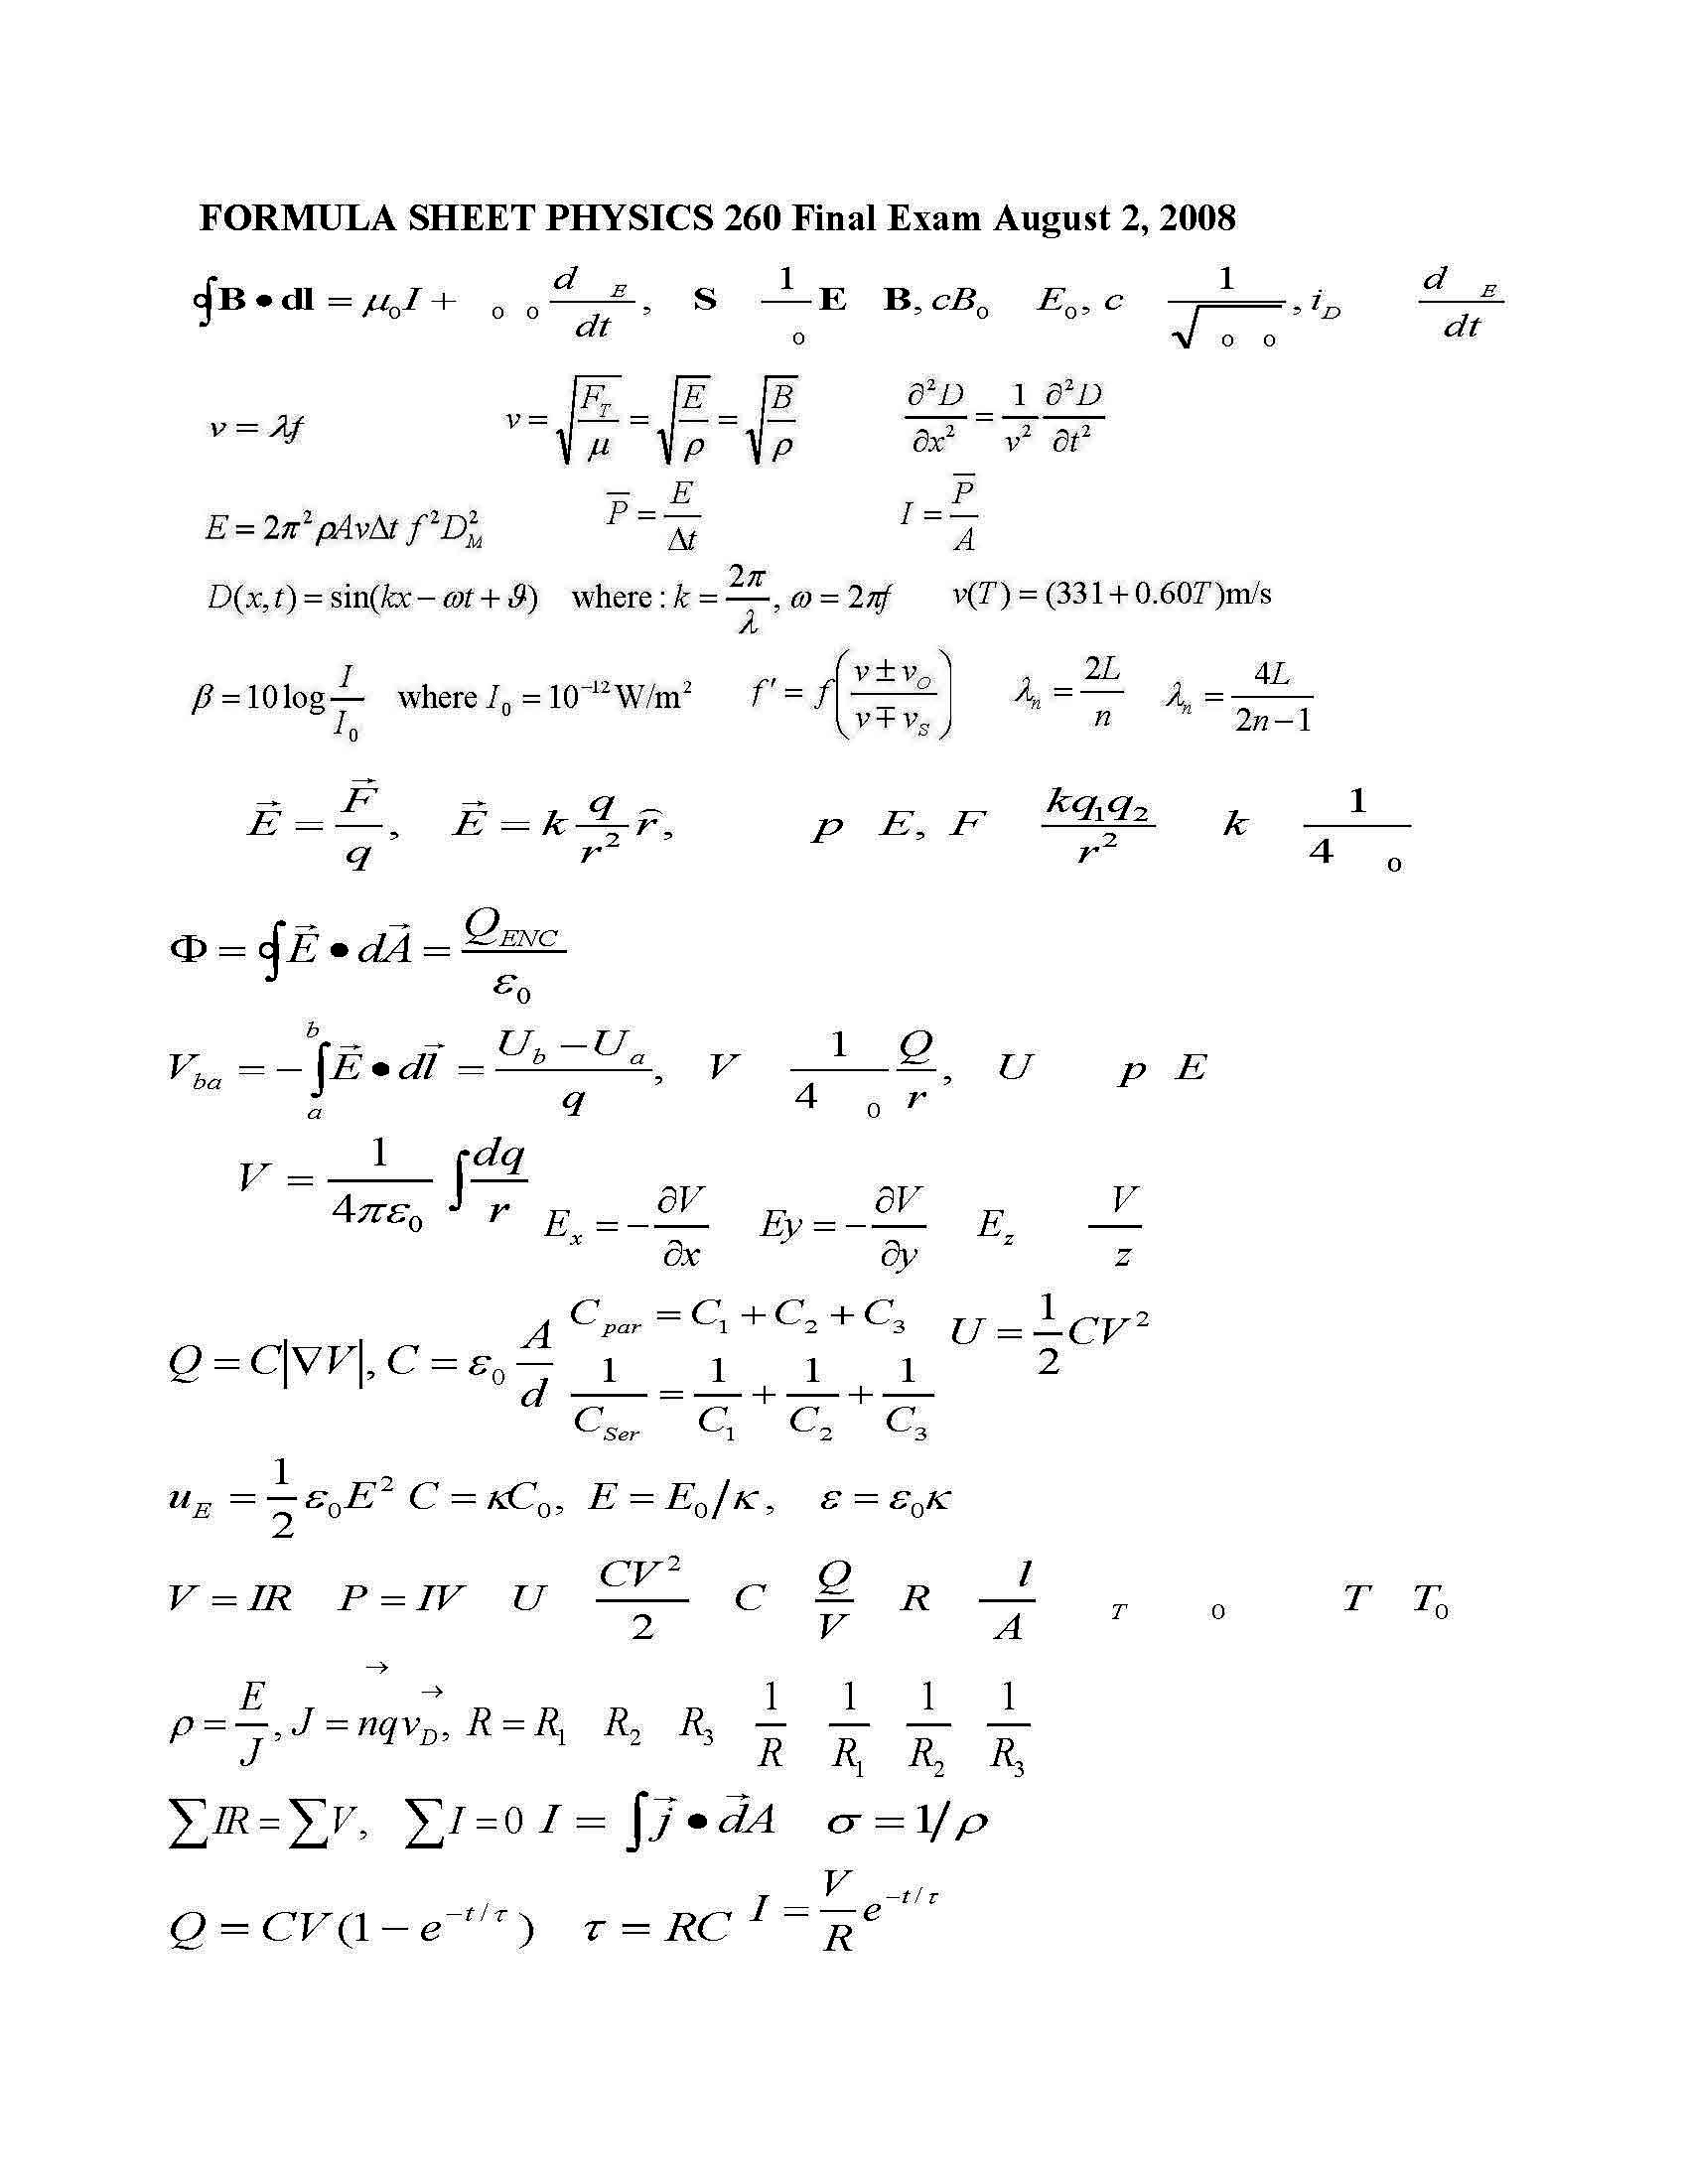 FORMULA SHEET PHYSICS 260 Final Exam August 2, 2008
∮B • dl = μ₀I + ₀ ₀ d _E/dt, S 1/ ₀ E B, cB₀ E₀, c 1/√ ₀ ₀, i_D d _E/dt
v = λf v = √(F_T/μ) = √(E/ρ) = √(B/ρ) ∂²D/∂x² = 1/v² ∂²D/∂t²
E = 2π²ρAvΔt f²D_M² P̅ = E/Δt I = P̅/A
D(x,t) = sin(kx − ωt + ϑ) where : k = 2π/λ, ω = 2πf v(T) = (331 + 0.60T)m/s
β = 10 log I/I₀ where I₀ = 10⁻¹² W/m² f′ = f((v ± v_O)/(v ∓ v_S)) λ_n = 2L/n λ_n = 4L/(2n − 1)
E⃗ = F⃗/q, E⃗ = k q/r² r̂, p E, F kq₁q₂/r² k 1/4 ₀
Φ = ∮E⃗ • dA⃗ = Q_ENC/ε₀
V_ba = −∫_a^b E⃗ • dl⃗ = (U_b − U_a)/q, V 1/4 ₀ Q/r, U p E
V = 1/4πε₀ ∫dq/r E_x = −∂V/∂x Ey = −∂V/∂y E_z V/z
Q = C|∇V|, C = ε₀ A/d C_par = C₁ + C₂ + C₃ 1/C_Ser = 1/C₁ + 1/C₂ + 1/C₃ U = 1/2 CV²
u_E = 1/2 ε₀E² C = κC₀, E = E₀/κ, ε = ε₀κ
V = IR P = IV U CV²/2 C Q/V R l/A _T ₀ T T₀
ρ = E/J, J⃗ = nqv⃗_D, R = R₁ R₂ R₃ 1/R 1/R₁ 1/R₂ 1/R₃
∑IR = ∑V, ∑I = 0 I = ∫j⃗ • d⃗A σ = 1/ρ
Q = CV(1 − e^(−t/τ)) τ = RC I = V/R e^(−t/τ)